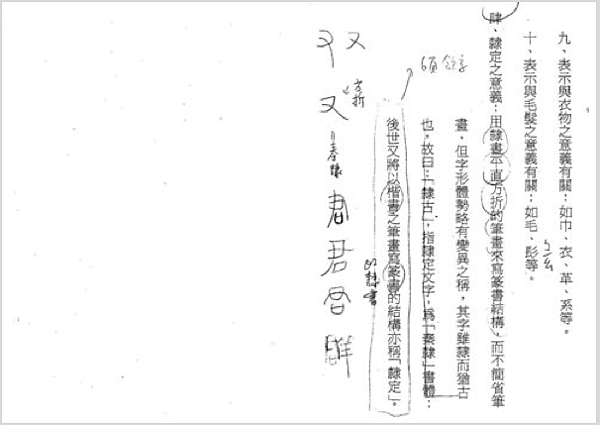 九、表示與衣物之意義有關：如巾、衣、革、系等。
十、表示與毛髮之意義有關：如毛、彭等。
肆、隸定之意義：用隸書平直方折的筆畫來寫篆書結構，而不簡省筆
畫，但字形體勢略有變異之稱，其字雖隸而猶古
也，故曰：「隸古」，指隸定文字，為「秦隸」書體；
後世又將以楷書之筆畫寫篆書的結構亦稱「隸定」。
方折
又 又
君 君